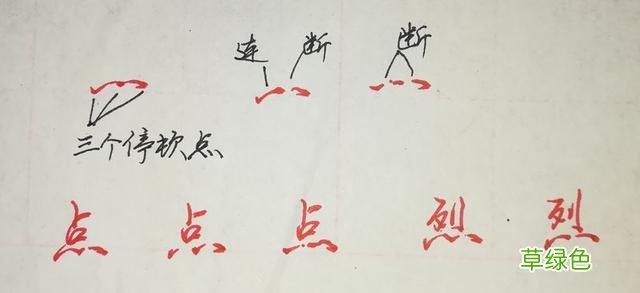 连 断 断
三个停顿点
点 点 点 烈 烈
草绿色